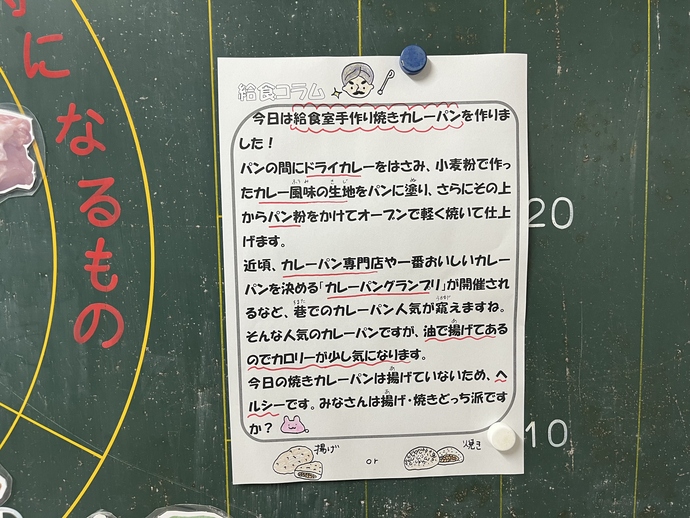 になるもの
給食コラム
今日は給食室手作り焼きカレーパンを作りま
した！
パンの間にドライカレーをはさみ、小麦粉で作っ
たカレー風味の生地をパンに塗り、さらにその上
からパン粉をかけてオーブンで軽く焼いて仕上
げます。
近頃、カレーパン専門店や一番おいしいカレー
パンを決める「カレーパングランプリ」が開催され
るなど、巷でのカレーパン人気が窺えますね。
そんな人気のカレーパンですが、油で揚げてある
のでカロリーが少し気になります。
今日の焼きカレーパンは揚げていないため、ヘ
ルシーです。みなさんは揚げ・焼きどっち派です
か？
揚げ or 焼き
20
10